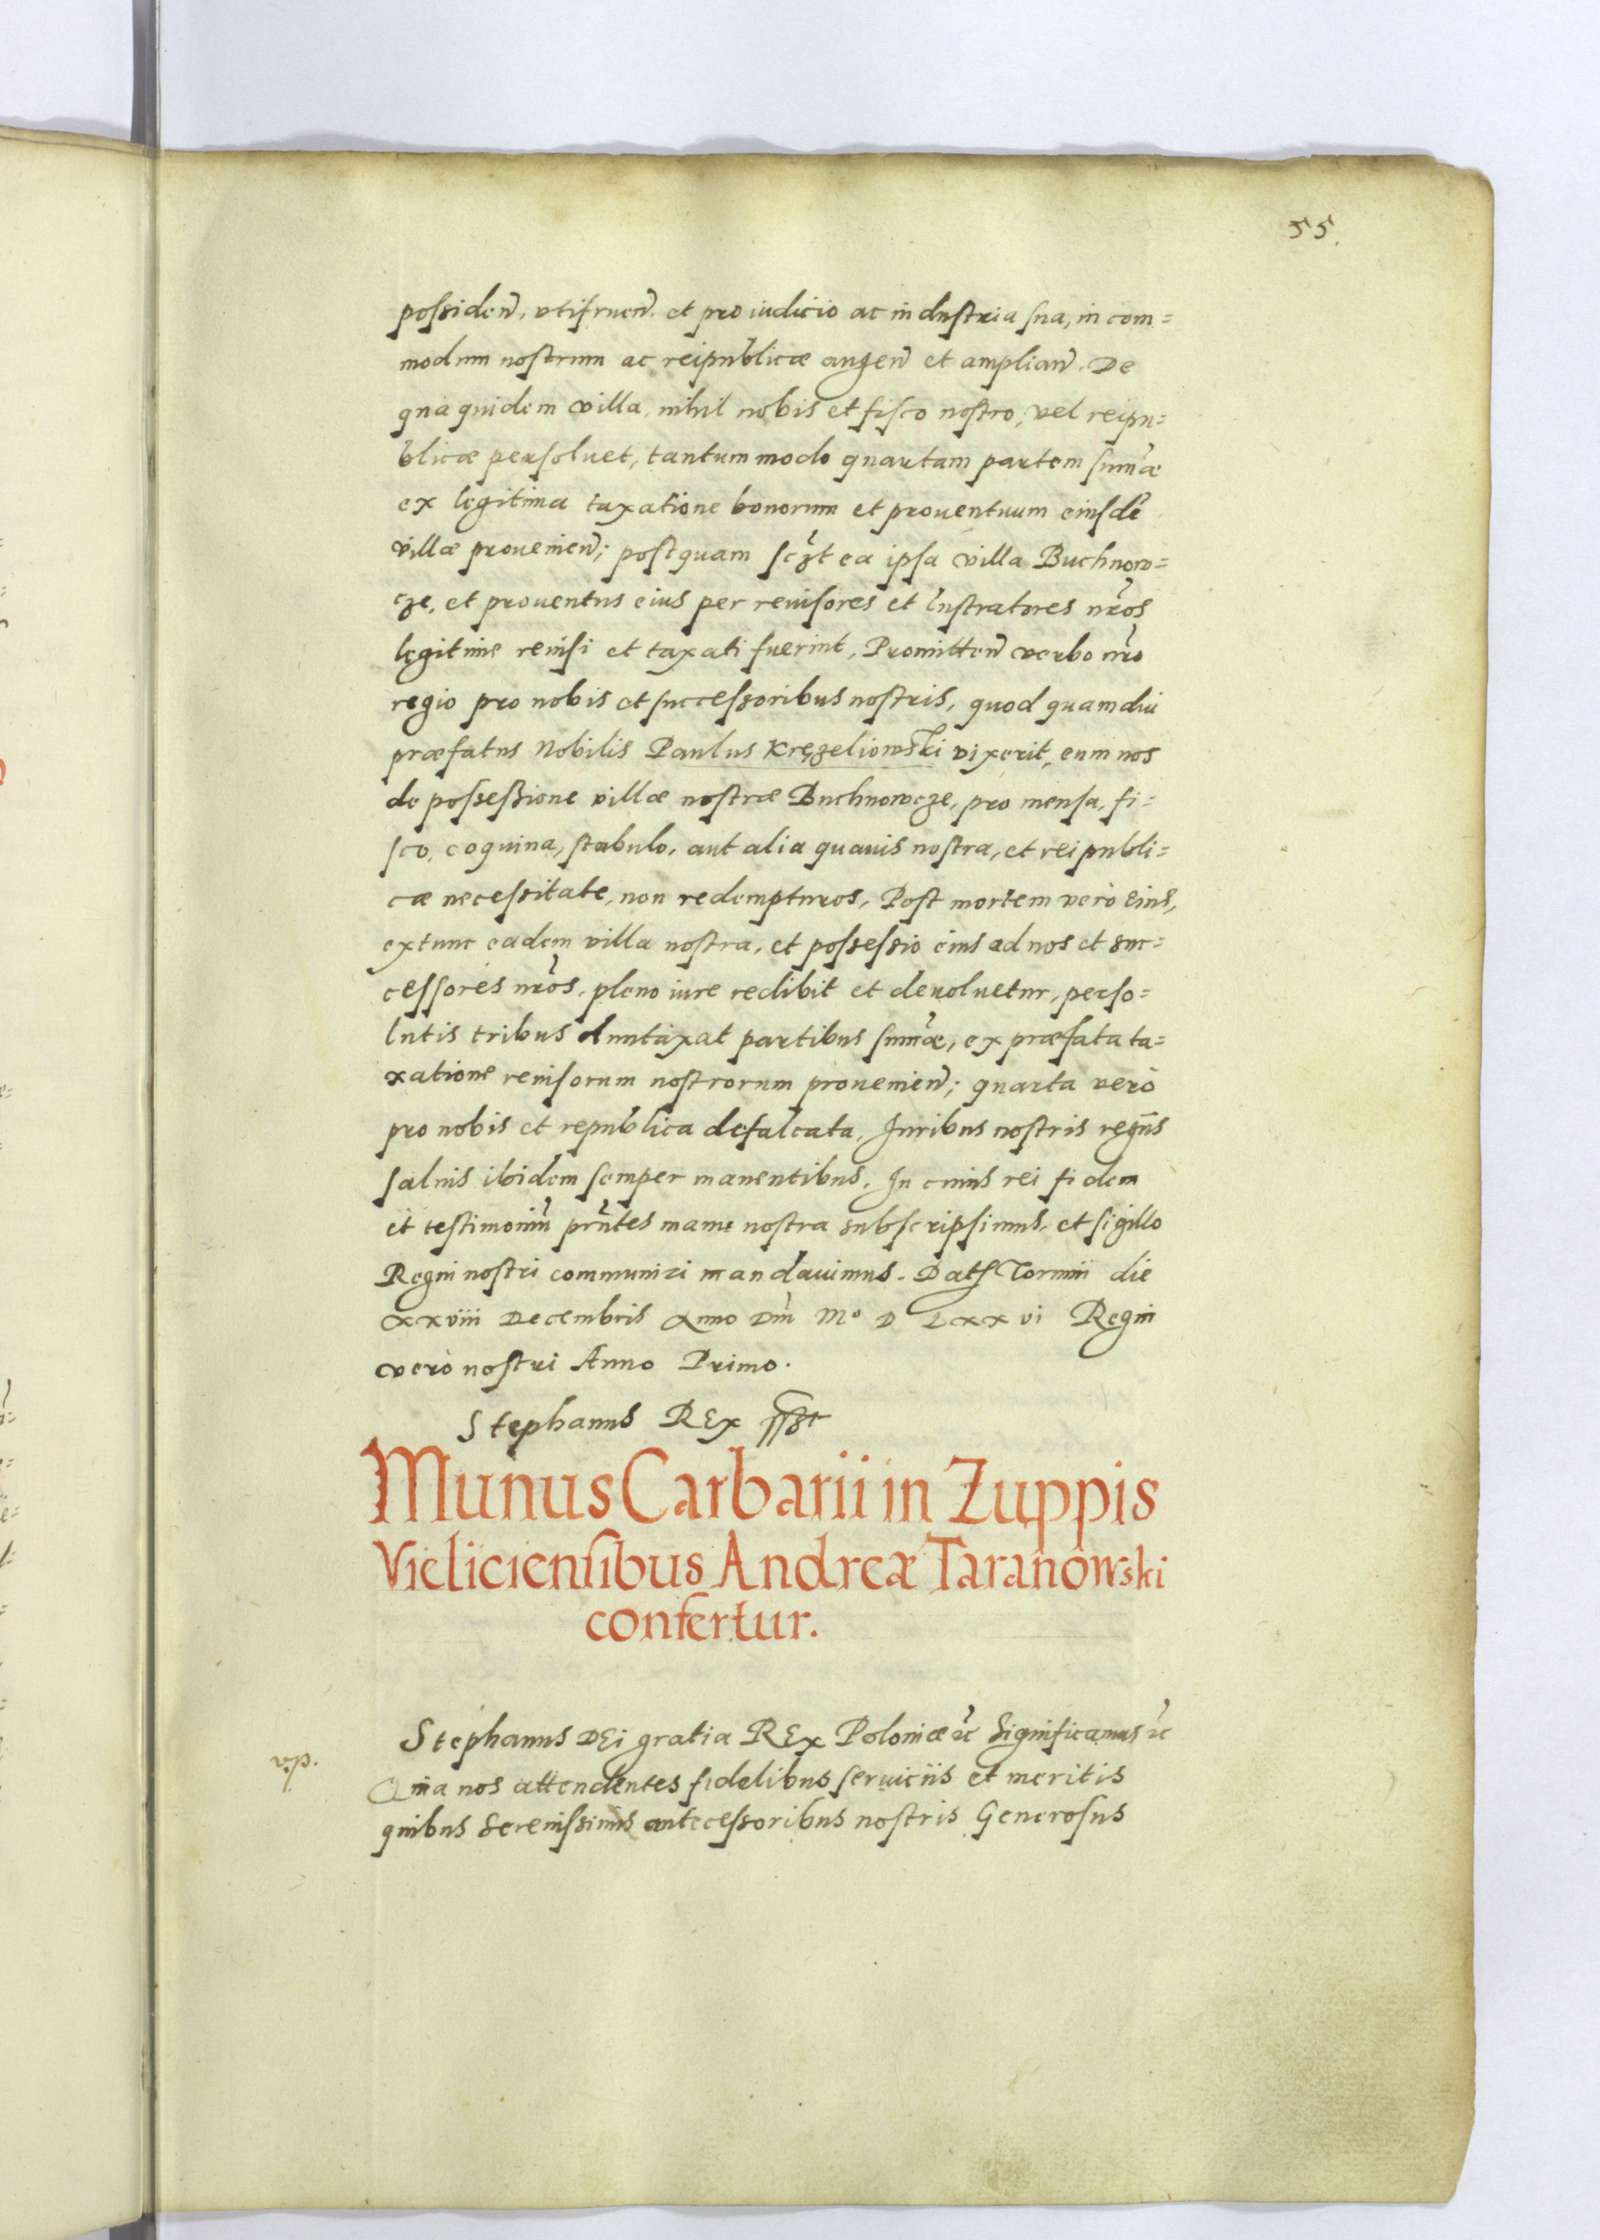 55.
possiden̄, vtifruen̄. et pro iudicio ac industria sua, in com=
modum nostrum ac reipublicæ augen̄ et amplian̄. De
qua quidem villa, nihil nobis et fisco nostro, vel reipu=
blicæ persoluet, tantummodo quartam partem sum̄æ
ex legitima taxatione bonorum et prouentuum eiusdē
villæ prouenien̄; postquam scꝫt ea ipsa villa Buchnow=
cze, et prouentus eius per reuisores et lustratores nr̄os
legitime reuisi et taxati fuerint, Promitten̄ verbo nr̄o
regio pro nobis et successoribus nostris, quod quamdiu
præfatus Nobilis Paulus Kręzeliowski vixerit, eum nos
de possessione villæ nostræ Buchnowcze, pro mensa, fi=
sco, coquina, stabulo, aut alia quauis nostra, et reipubli=
cæ necessitate, non redempturos, Post mortem verò eius,
extunc eadem villa nostra, et possessio eius ad nos et suc=
cessores nr̄os, pleno iure redibit et deuoluetur, perso=
lutis tribus duntaxat partibus sum̄æ, ex præfata ta=
xatione reuisorum nostrorum prouenien̄; quarta verò
pro nobis et republica defalcata, Iuribus nostris regn̄s
saluis ibidem semper manentibus, In cuius rei fidem
et testimoniū pn̄tes manu nostra subscripsimus, et sigillo
Regni nostri communiri mandauimus. Datꝭ Torunii die
xxviii Decembris Anno Dni̅ Mº D Lxxvi Regni
verò nostri Anno Primo.
Stephanus REx ssᵗ
Munus Carbarii in Zuppis
Vieliciensibus Andreæ Taranowski
confertur.
Stephanus DEi gratia REx Poloniæ ⁊c̄ Significamus ⁊c̄
v.p.
Quia nos attendentes fidelibus seruiciis et meritis
quibus Serenissimis antecessoribus nostris Generosus